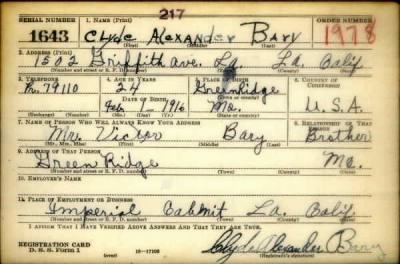 217
SERIAL NUMBER 1. NAME (Print) ORDER NUMBER
1643 Clyde Alexander Bary 1978
(First) (Middle) (Last)
2. ADDRESS (Print)
1502 Griffith ave. La. La. Calif
(Number and street or R. F. D. number) (Town) (County) (State)
3. TELEPHONE 4. AGE IN YEARS 5. PLACE OF BIRTH 6. COUNTRY OF CITIZENSHIP
79110 24 Green Ridge
DATE OF BIRTH
Feb 1 1916 Mo. U.S.A.
(Exchange) (Number) (Mo.) (Day) (Yr.) (State or country)
7. NAME OF PERSON WHO WILL ALWAYS KNOW YOUR ADDRESS 8. RELATIONSHIP OF THAT PERSON
Mr. Victor Bary Brother
(Mr., Mrs., Miss) (First) (Middle) (Last)
9. ADDRESS OF THAT PERSON
Green Ridge Mo.
(Number and street or R. F. D. number) (Town) (County) (State)
10. EMPLOYER'S NAME
11. PLACE OF EMPLOYMENT OR BUSINESS
Imperial Cabinit La. Calif
(Number and street or R. F. D. number) (Town) (County) (State)
I AFFIRM THAT I HAVE VERIFIED ABOVE ANSWERS AND THAT THEY ARE TRUE.
REGISTRATION CARD
D. S. S. Form 1 (over) 16—17105 Clyde Alexander Bary
(Registrant's signature)